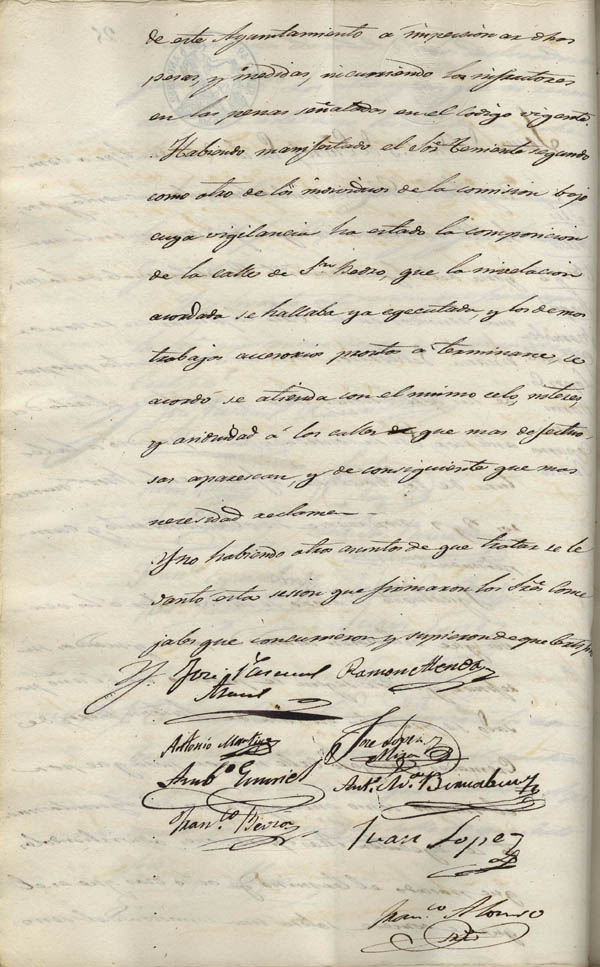 de este Ayuntamiento á inspeccionar dhos
pesas, y medidas, incurriendo los infractores
en las penas señaladas en el codigo vigente.
Habiendo manifestado el Sor. Teniente segundo
como otro de los individuos de la comision bajo
cuya vigilancia ha estado la composicion
de la calle de Sn. Pedro, que la nivelacion
acordada se hallaba ya egecutada, y los demas
trabajos accesorios prontos a terminarse, se
acordó se atienda con el mismo celo, interes,
y asiduidad á las calles de que mas defectuo-
sas aparescan, y de consiguiente que mas
necesidad reclamen
Y no habiendo otros asuntos de que tratar se le
vantó esta sesion que firmaron los Sres. Conce
jales que concurrieron y supieron de que certifico
José Pascual Ramon Mendez
Antonio Martinez José Lopez
Mira
Amb.o Gumiel Ant.o M.a Bernabeu
Fran.co Juan Lopez
Fran.co Alonso
Srio